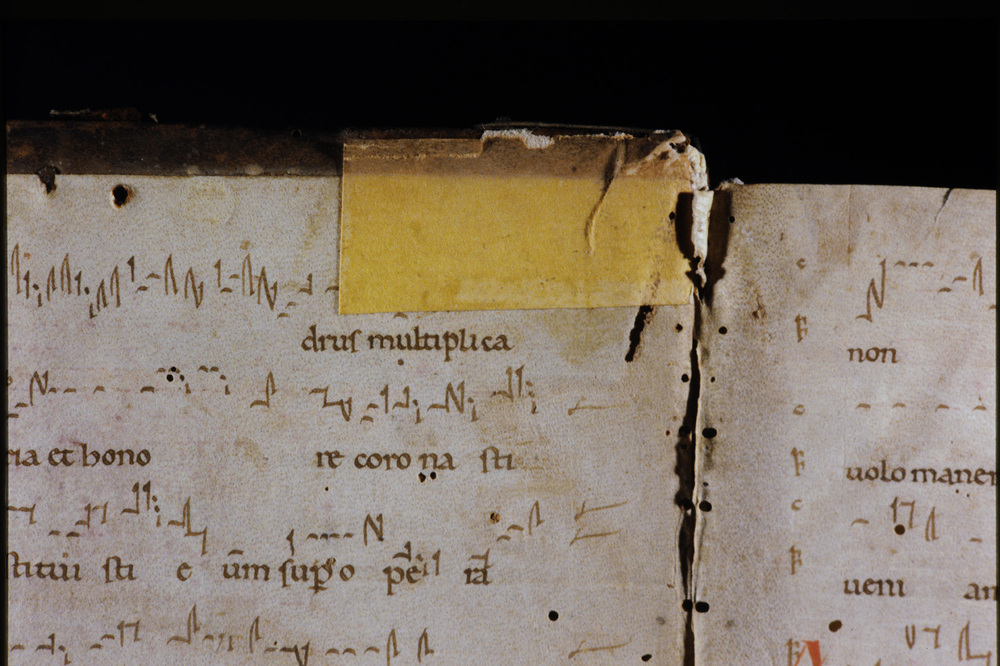 drus multiplica
ria et bono re corona sti
stituisti e um sup o pe
non
uolo maner
ueni an